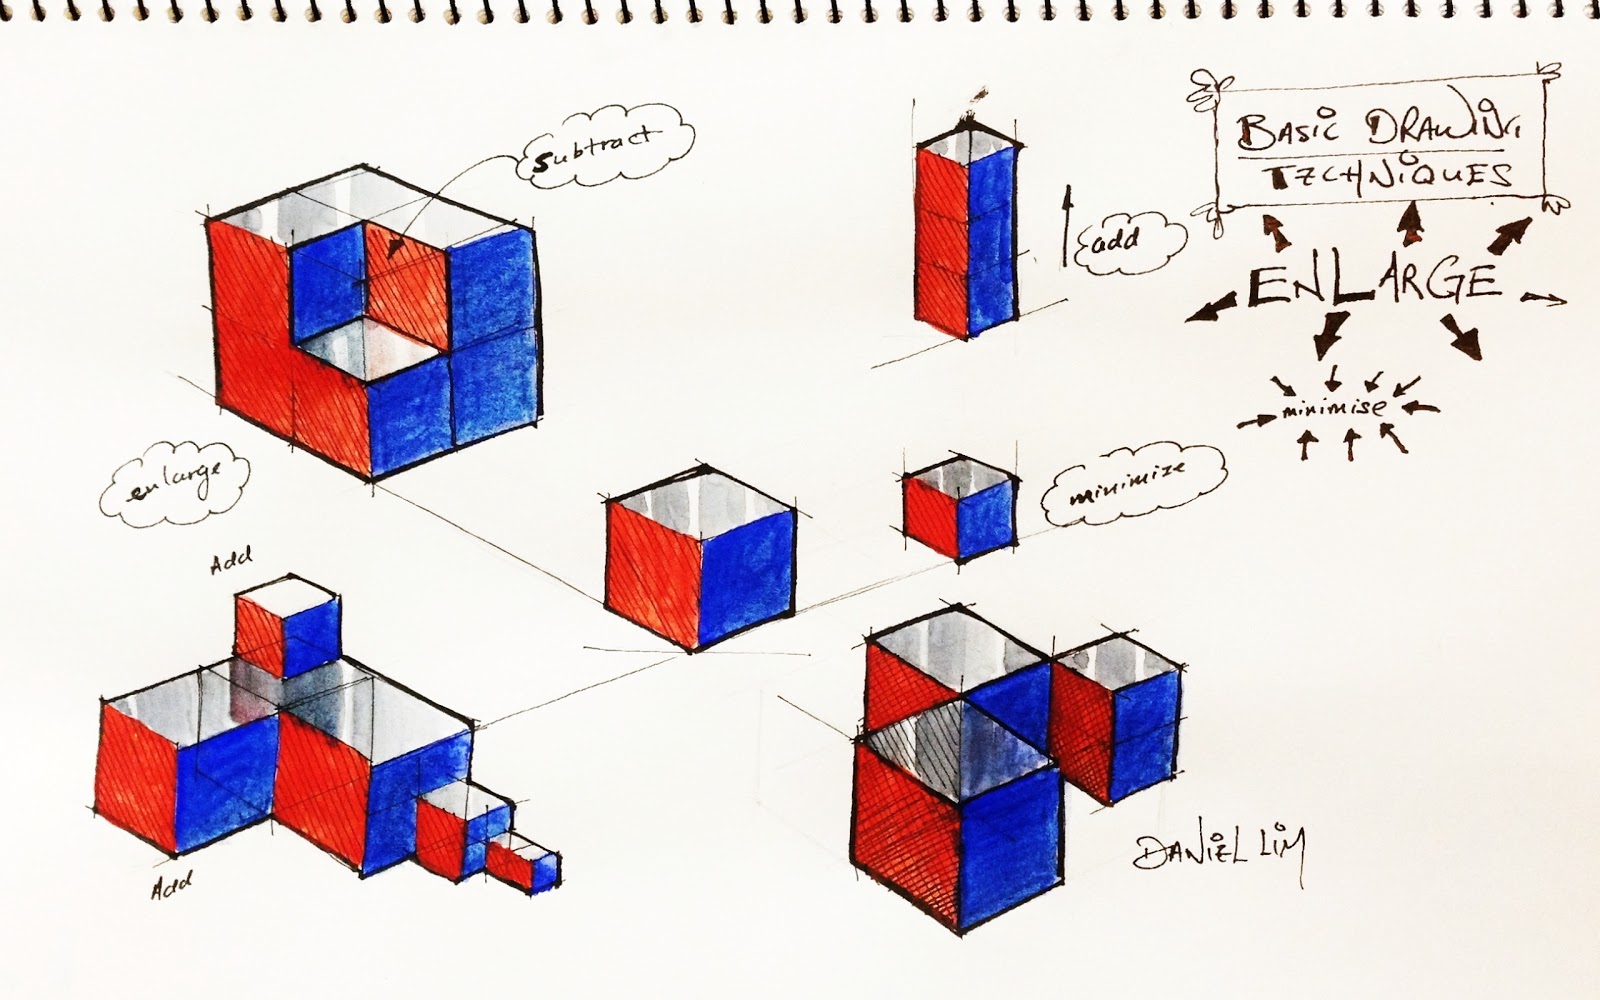 BASIC DRAWING
TECHNIQUES
ENLARGE
minimise
subtract
add
enlarge
minimize
Add
Add
DANIEL LIM